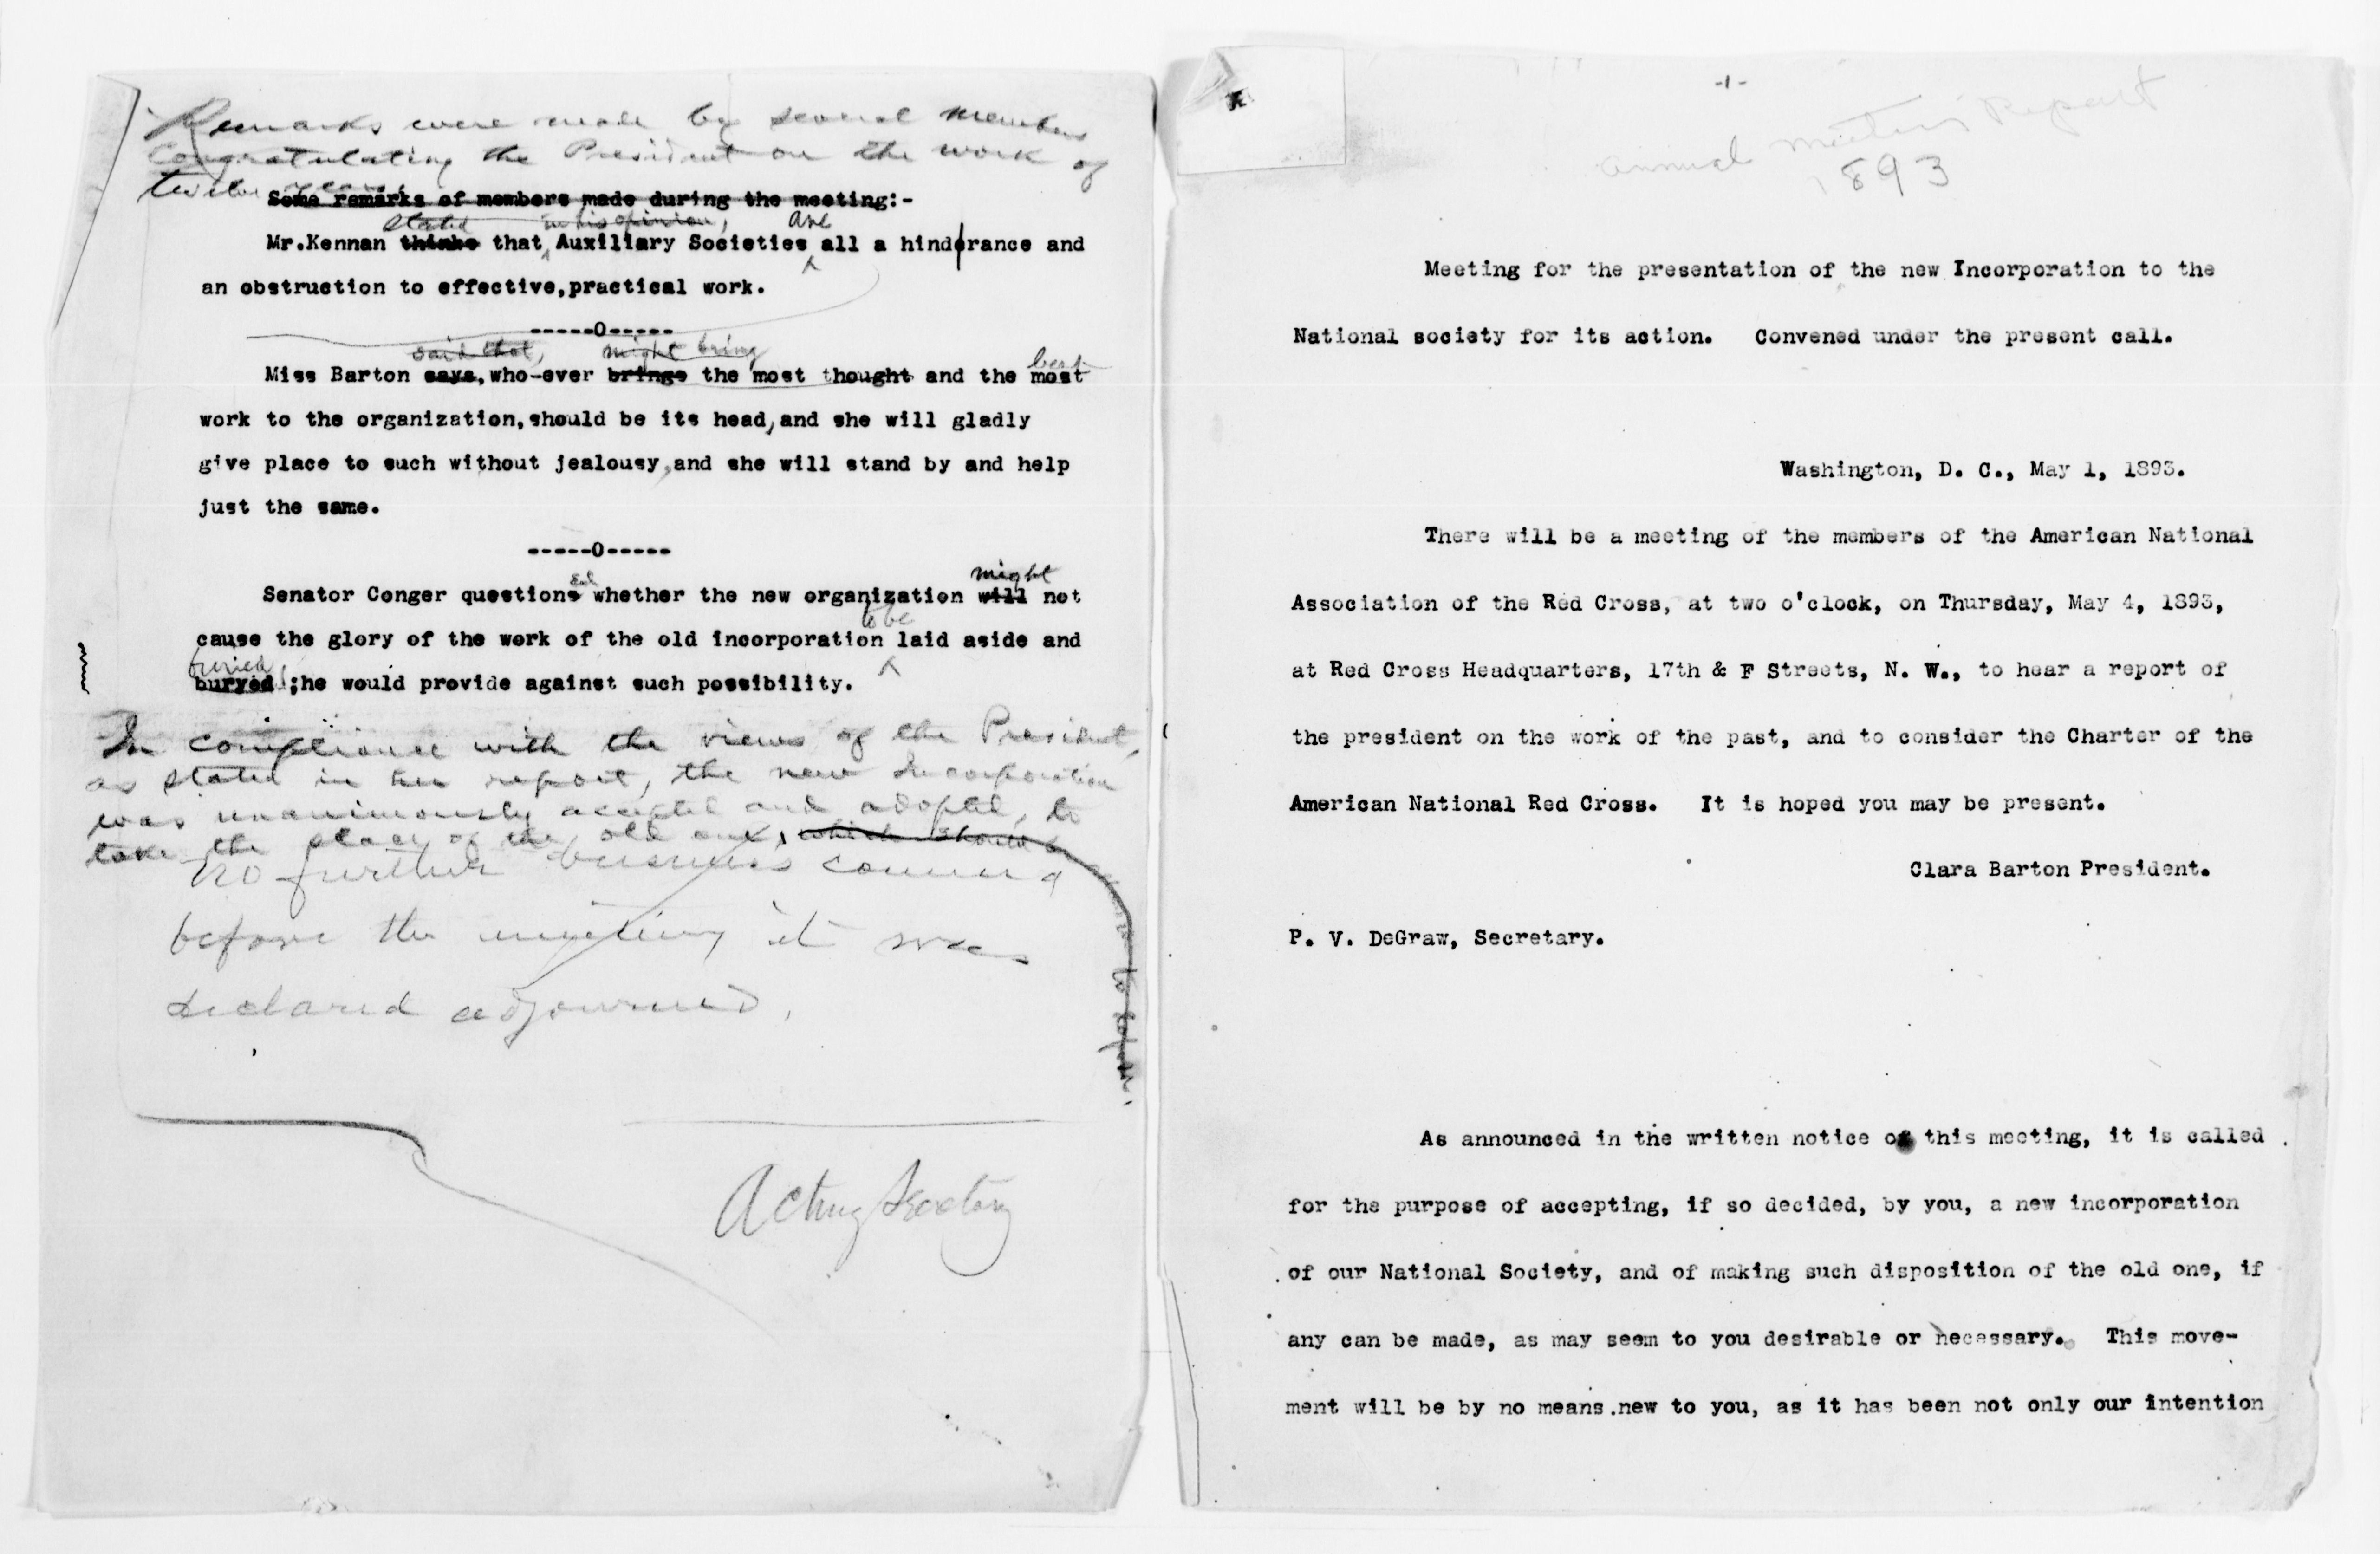 Remarks were made by several members
Congratulating the President on the work of
twelve years.
Some remarks of members made during the meeting:-
stated in his opinion, are
Mr.Kennan thinks that Auxiliary Societies all a hinderance and
an obstruction to effective,practical work.
-----0-----
said that, might bring
best
Miss Barton says,who-ever brings the most thought and the most
work to the organization,should be its head,and she will gladly
give place to such without jealousy,and she will stand by and help
just the same.
-----0-----
ed might
Senator Conger questions whether the new organization will not
to be
cause the glory of the work of the old incorporation laid aside and
buried
buryed ;he would provide against such possibility.
In compliance with the views of the President,
as stated in her report, the new Incorporation
was unanimously accepted and adopted, to
take the place of the old one, which should be
No further business coming
before the meeting it was
declared adjourned.
Acting Secretary
-1-
annual meeting Report
1893
Meeting for the presentation of the new Incorporation to the
National society for its action. Convened under the present call.
Washington, D. C., May 1, 1893.
There will be a meeting of the members of the American National
Association of the Red Cross, at two o'clock, on Thursday, May 4, 1893,
at Red Cross Headquarters, 17th & F Streets, N. W., to hear a report of
the president on the work of the past, and to consider the Charter of the
American National Red Cross. It is hoped you may be present.
Clara Barton President.
P. V. DeGraw, Secretary.
As announced in the written notice of this meeting, it is called
for the purpose of accepting, if so decided, by you, a new incorporation
of our National Society, and of making such disposition of the old one, if
any can be made, as may seem to you desirable or necessary. This move-
ment will be by no means new to you, as it has been not only our intention